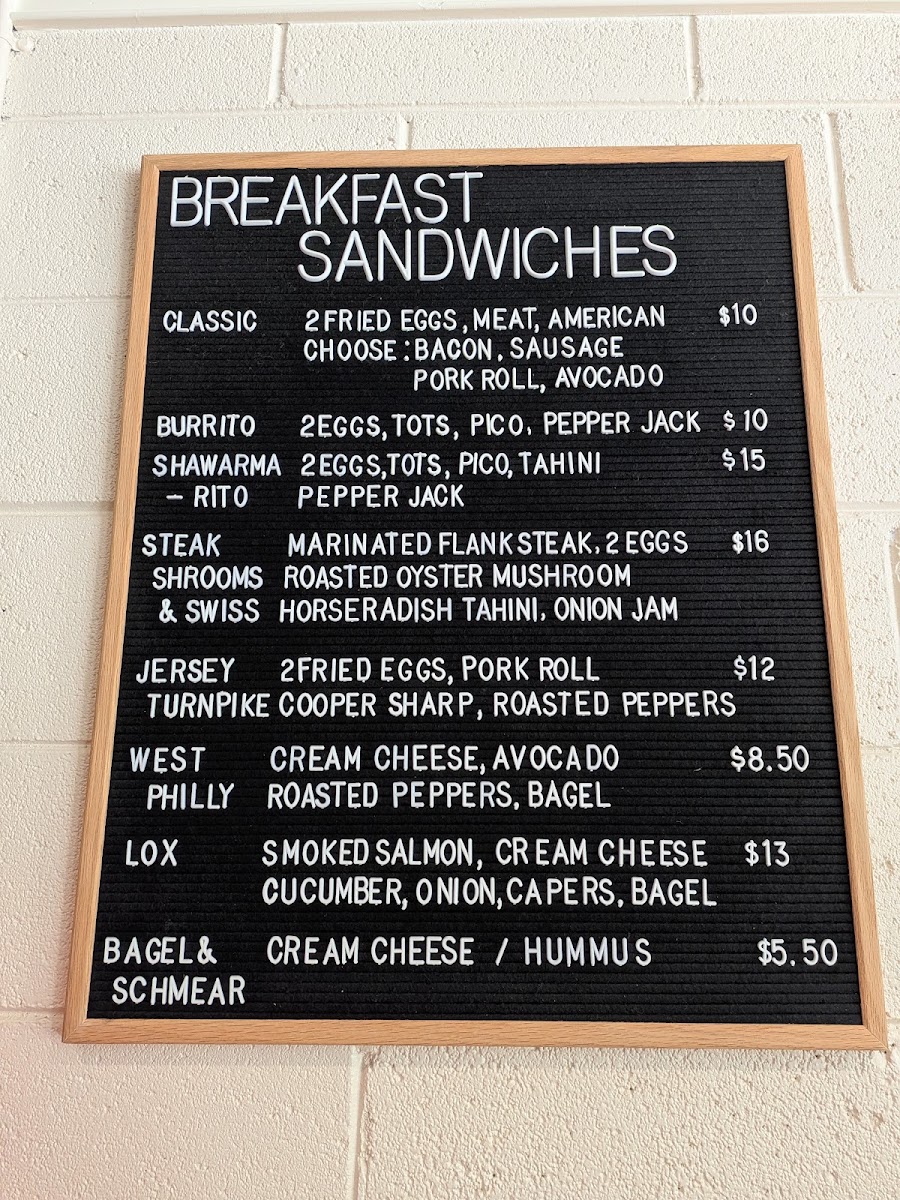 BREAKFAST
SANDWICHES
CLASSIC 2 FRIED EGGS, MEAT, AMERICAN $10
CHOOSE: BACON, SAUSAGE
PORK ROLL, AVOCADO
BURRITO 2 EGGS, TOTS, PICO, PEPPER JACK $10
SHAWARMA 2 EGGS, TOTS, PICO, TAHINI $15
- RITO PEPPER JACK
STEAK MARINATED FLANK STEAK, 2 EGGS $16
SHROOMS ROASTED OYSTER MUSHROOM
& SWISS HORSERADISH TAHINI, ONION JAM
JERSEY 2 FRIED EGGS, PORK ROLL $12
TURNPIKE COOPER SHARP, ROASTED PEPPERS
WEST CREAM CHEESE, AVOCADO $8.50
PHILLY ROASTED PEPPERS, BAGEL
LOX SMOKED SALMON, CREAM CHEESE $13
CUCUMBER, ONION, CAPERS, BAGEL
BAGEL & CREAM CHEESE / HUMMUS $5.50
SCHMEAR